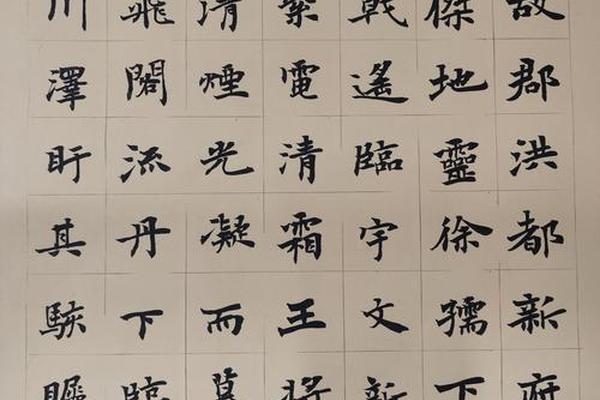 故郡洪都新府
傑地靈徐孺下
戟遙臨宇文新
紫電清霜王將
清煙光凝而暮
飛閣流丹下臨
川澤盱其駭矚